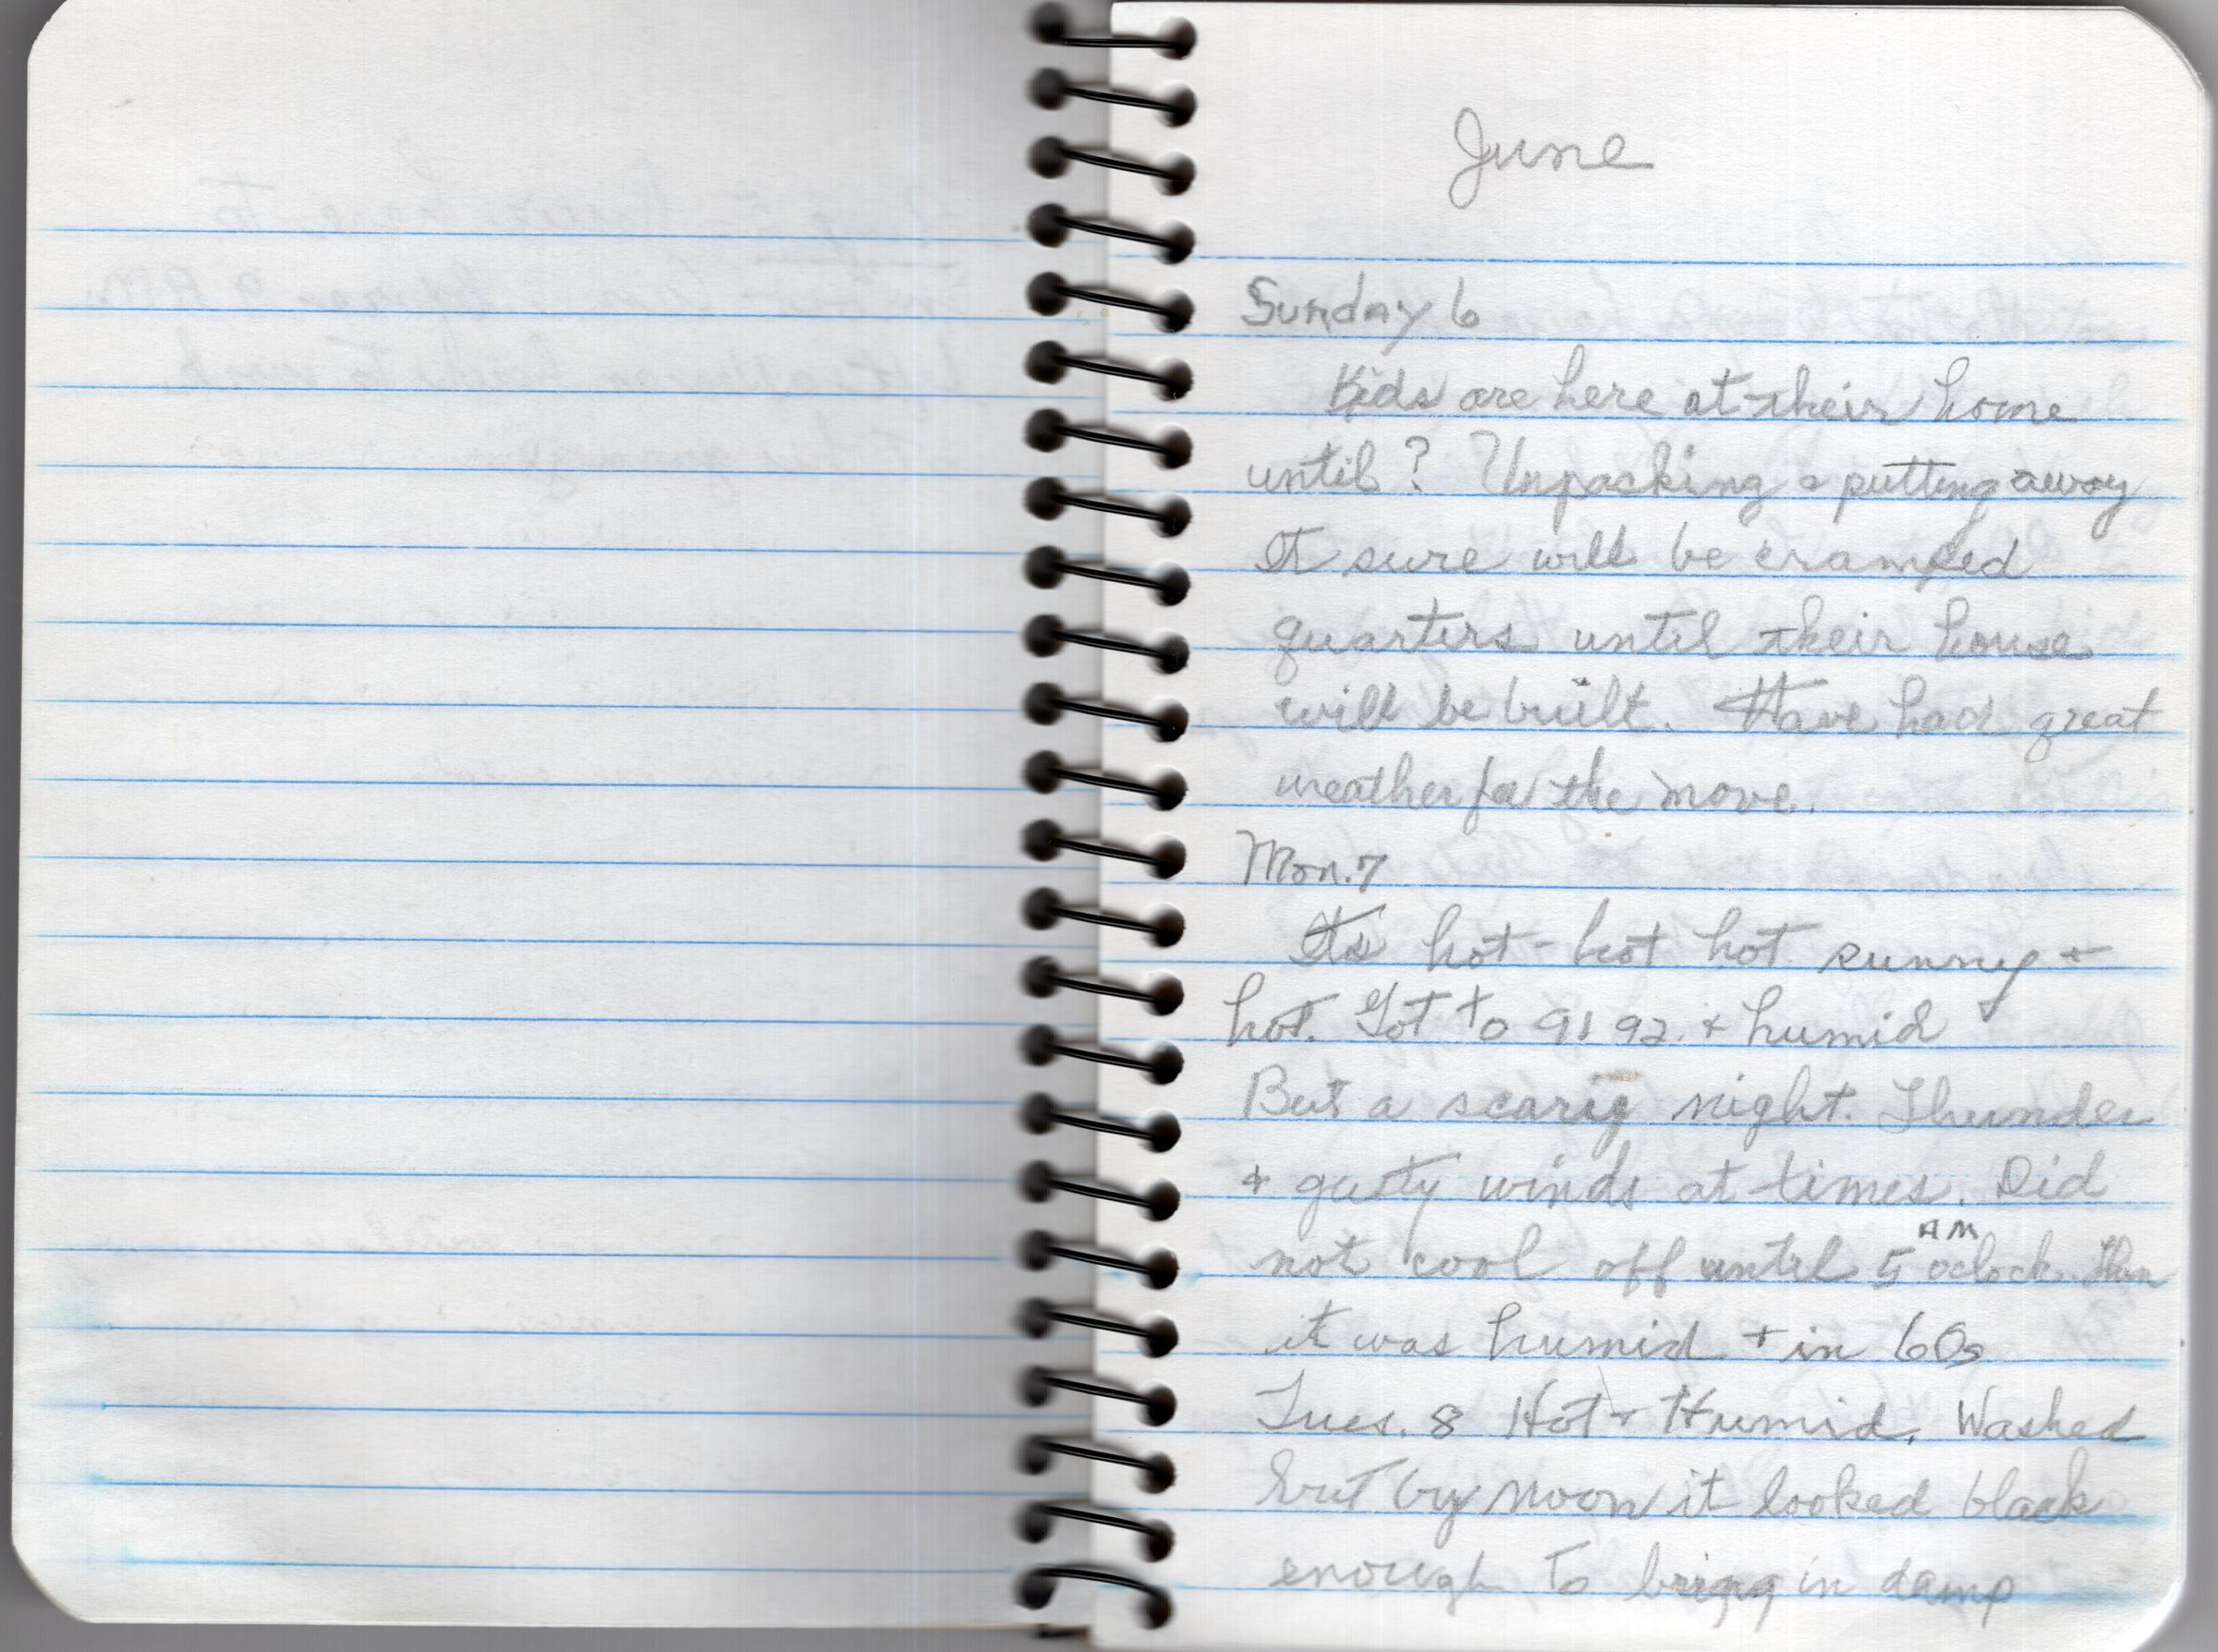 June
Sunday 6
Kids are here at their home
until? Unpacking & putting away
It sure will be cramped
quarters until their house
will be built. Have had great
weather for the move.
Mon. 7
Its hot - hot hot sunny +
hot. Got to 91 92. + humid
But a scary night. Thunder
+ gusty winds at times. Did
not cool off until 5 AM oclock. Then
it was humid + in 60s
Tues. 8 Hot + Humid. Washed
but by noon it looked black
enough to bring in damp